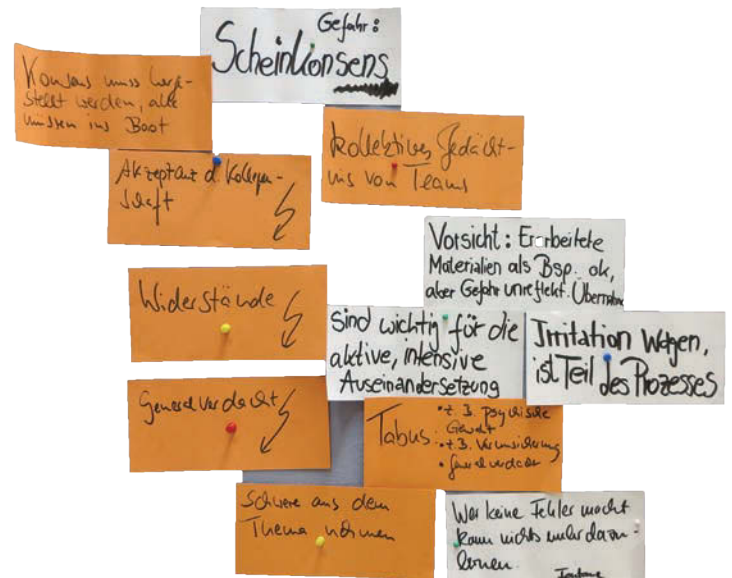 Gefahr:
Scheinkonsens
Konsens muss herge-
stellt werden, alle
müssen ins Boot
Kollektives Gedächt-
nis von Teams
Akzeptanz d. Kollegen-
schaft
Vorsicht: Erarbeitete
Materialien als Bsp. ok,
aber Gefahr unreflekt. Übernahme
Widerstände
sind wichtig für die
aktive, intensive
Auseinandersetzung
Irritation wagen,
ist Teil des Prozesses
Generalverdacht
Tabus:
• z.B. psychische
Gewalt
• z.B. Verunsicherung
• Generalverdacht
Schwere aus dem
Thema nehmen
Wer keine Fehler macht
kann nichts mehr dazu-
lernen.